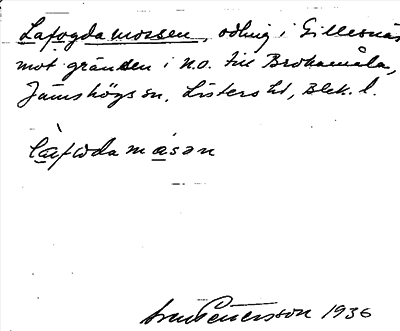 Lafogdamossen, odling i Gillesnäs
mot gränden i N.O. till Brokamåla,
Jämshögs sn, Listers hd, Blek. l.
låfωdamåsən
Sven Petersson 1936